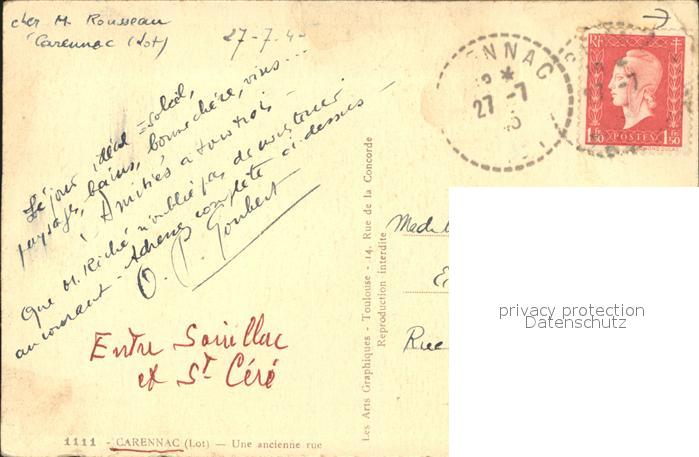 cher M. Rousseau
Carennac (Lot)
27-7-4
Séjour idéal = soleil,
paysage, bains, bonne chère, vins...
! Amitiés à tous trois -
Que M. Riché n'oublie pas de nous tenir
au courant - Adresse complète ci-dessus -
O. P. Goubert
Entre Souillac
et St Céré
1111 - CARENNAC (Lot) - Une ancienne rue
Les Arts Graphiques - Toulouse - 14, Rue de la Concorde
Reproduction interdite
ENNAC
27 -7
RF
1F50 POSTES 1F50
Rue
privacy protection
Datenschutz